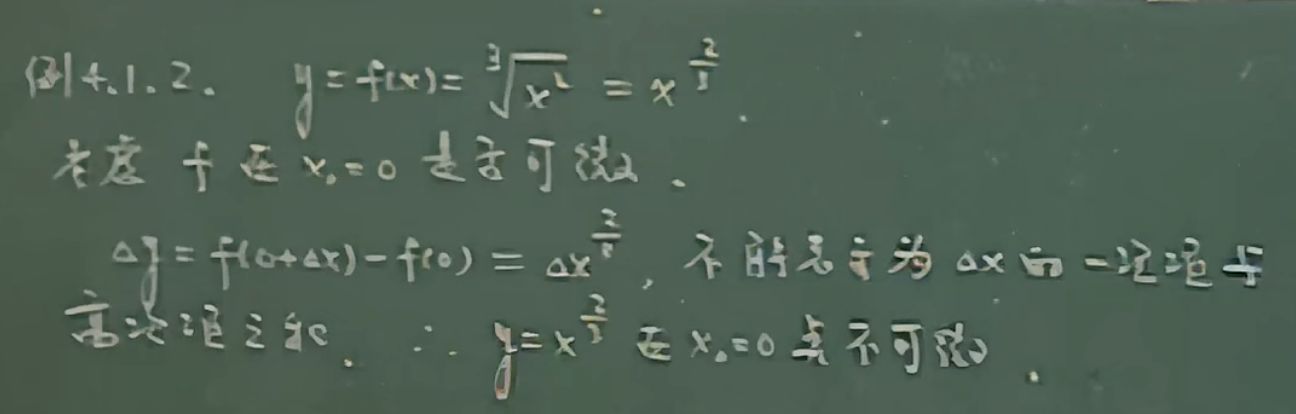 例4.1.2. y=f(x)=∛x² = x^{2/3}
考虑 f 在 x₀=0 是否可微.
Δy=f(0+Δx)-f(0)=Δx^{2/3}, 不能表示为 Δx 的一次项与
高次项之和. ∴ y=x^{2/3} 在 x₀=0 点不可微.